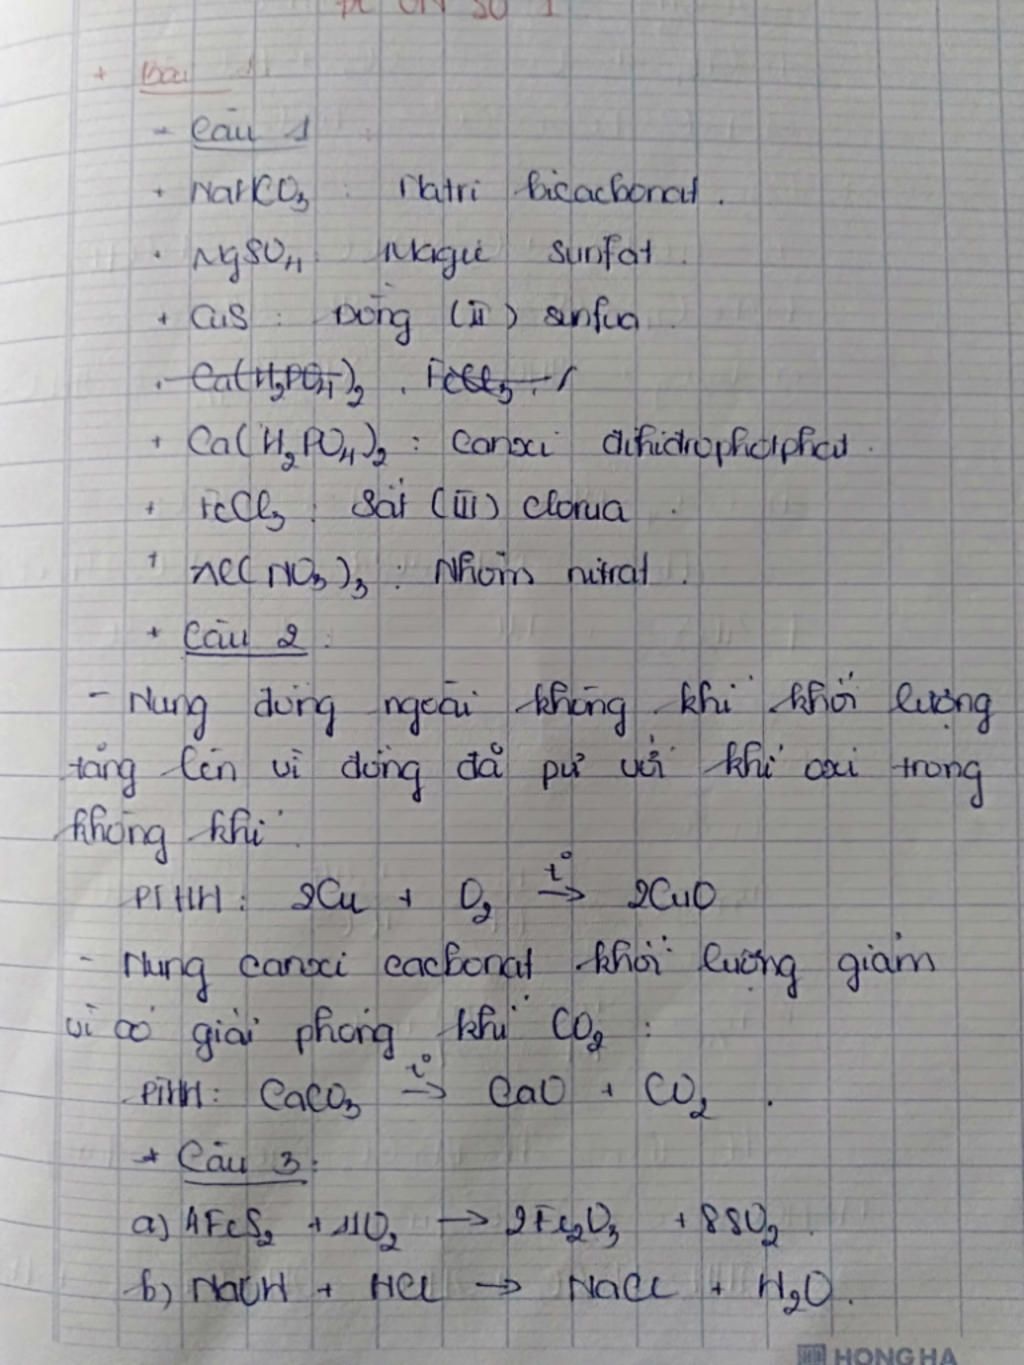 + Bài 1.
- Câu 1
+ NaHCO3 : Natri bicacbonat.
· MgSO4 Magie sunfat.
+ CuS : Đồng (II) sunfua
. Ca(H2PO4)2 . FeCl3
+ Ca(H2PO4)2 : Canxi đihiđrophotphat.
+ FeCl3 : Sắt (III) clorua.
+ Al(NO3)3 : Nhôm nitrat.
+ Câu 2.
- Nung đồng ngoài không khí khối lượng
tăng lên vì đồng đã pứ với khí oxi trong
không khí.
PTHH: 2Cu + O2 t°→ 2CuO
- Nung canxi cacbonat khối lượng giảm
vì có giải phóng khí CO2 :
PTHH: CaCO3 t°→ CaO + CO2 .
+ Câu 3:
a) 4FeS2 + 11O2 → 2Fe2O3 + 8SO2.
b) NaOH + HCl → NaCl + H2O.
HONG HA